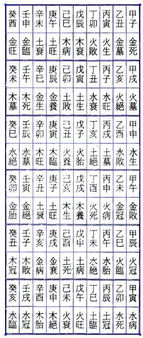 甲子 乙丑 丙寅 丁卯 戊辰 己巳 庚午 辛未 壬申 癸酉
金死 金墓 火生 火敗 木衰 木病 土旺 土衰 金臨 金旺
甲戌 乙亥 丙子 丁丑 戊寅 己卯 庚辰 辛巳 壬午 癸未
火墓 火絕 水旺 水衰 土生 土敗 金生 木死 木墓
甲申 乙酉 丙戌 丁亥 戊子 己丑 庚寅 辛卯 壬辰 癸巳
水生 水敗 土墓 火胎 火養 木臨 木旺 水墓 水絕
甲午 乙未 丙申 丁酉 戊戌 己亥 庚子 辛丑 壬寅 癸卯
金敗 金冠 火病 火死 木養 木生 土旺 土衰 金絕 金胎
甲辰 乙巳 丙午 丁未 戊申 己酉 庚戌 辛亥 壬子 癸丑
火冠 火臨 水胎 水養 土病 土死 金衰 金病 木敗 木冠
甲寅 乙卯 丙辰 丁巳 戊午 己未 庚申 辛酉 壬戌 癸亥
水病 水死 土墓 土絕 火旺 火衰 木絕 木胎 水冠 水臨